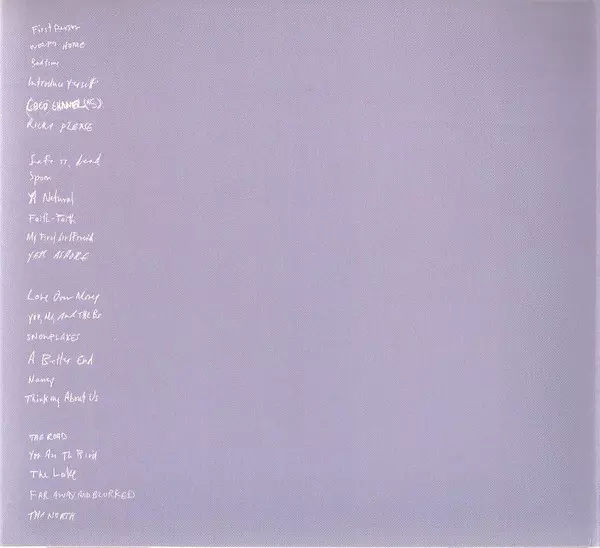 First Person
WOLF'S HOME
Bedtime
Introduce Yerself
COCO CHANEL (N°5)
RICKY PLEASE
Safe is dead
Spoon
A Natural
Faith-Faith
My First Girlfriend
YER ASHORE
Love Over Money
YOU, ME AND THE B's
SNOWFLAKES
A Better End
Nancy
Thinking About Us
THE ROAD
You Are The Bird
The Lake
FAR AWAY AND BLURRED
THE NORTH